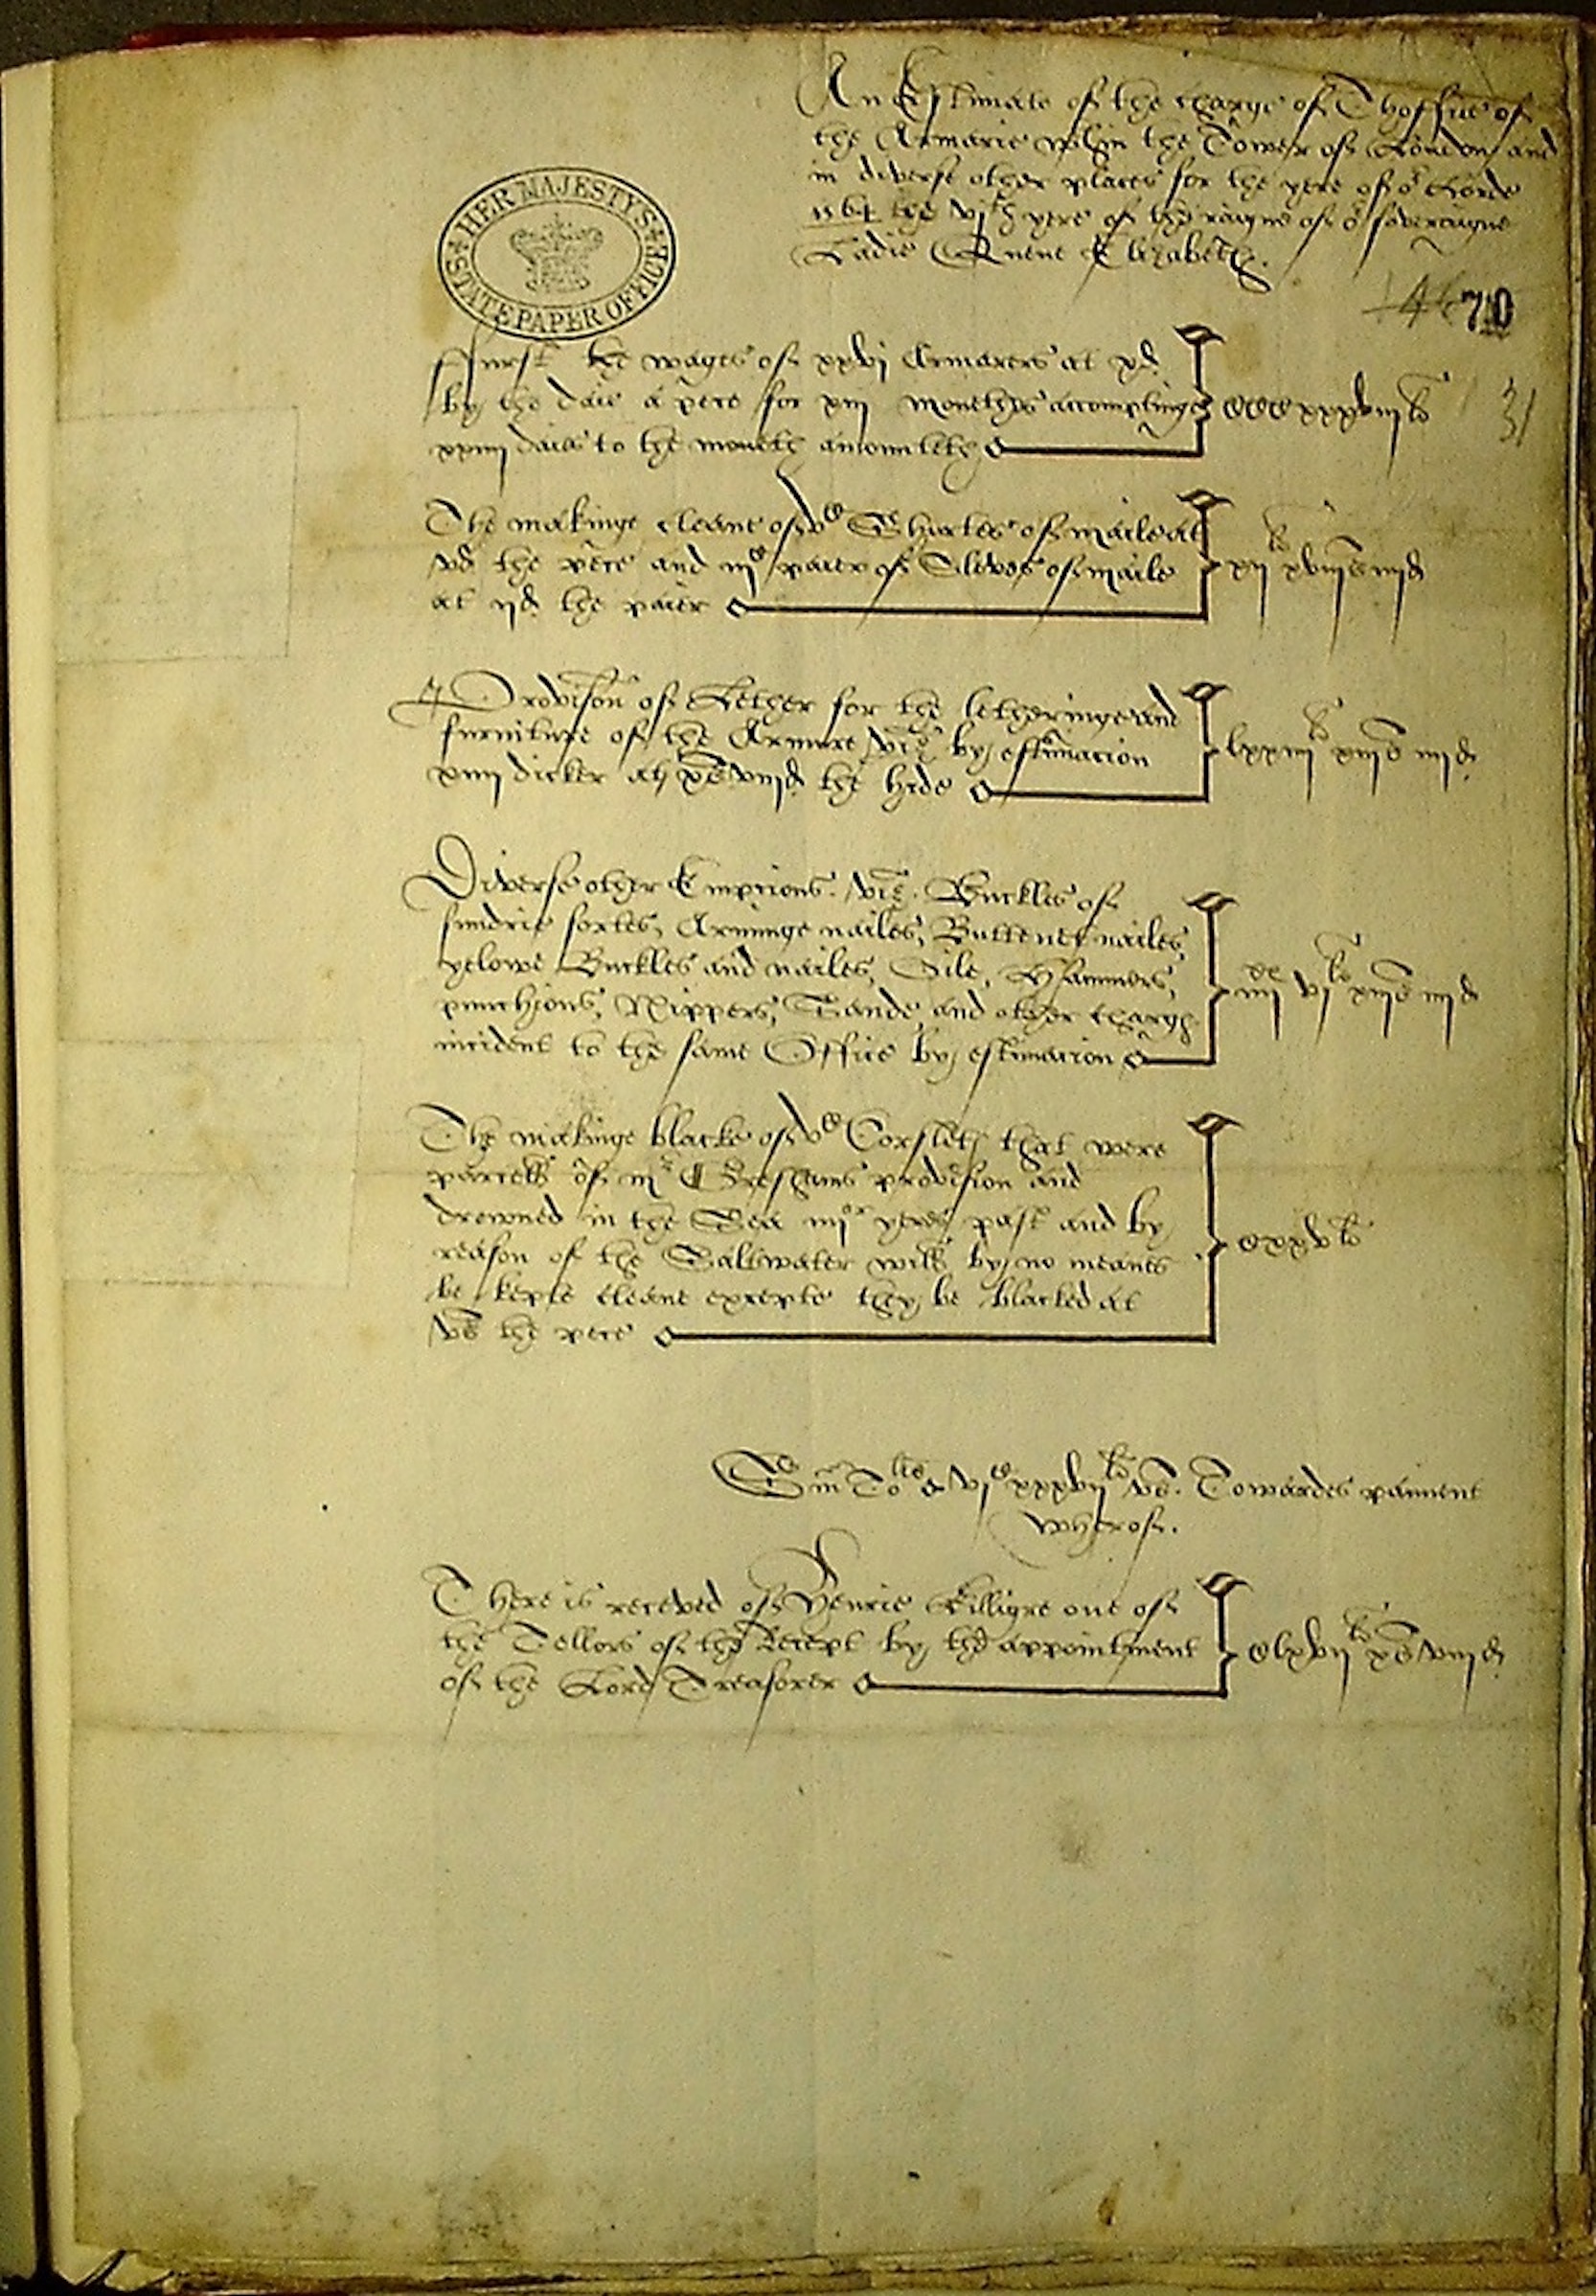 An Estimate of the charge of Thoffice of
the Armarie wthin the Tower of London and
in diverse other places for the yere of or Lorde
1564 the vjth yere of the raigne of or soveraigne
Ladie Quene Elizabeth.
HER MAJESTYS STATE PAPER OFFICE
70
31
ffurst the wages of xxvj Armarers at xd
by the daie a pece for xiij monethes accomptinge
xxiiij daies to the moneth amounteth
CCCxxxviij li
The makinge cleane of vC Shirtes of maile at
vd the pece and iijC paier of Sleves of maile
at ijd the paier
xij li xviijs iiijd
Provision of Lether for the letheringe and
furniture of the Armure viz by estimacion
xiiij dicker at xs viijd the hide
lxxiiij li xiijs iiijd
Diverse other Empcions. viz. Buckles of
sundrie sortes, Arminge nailes, Buttenet nailes,
yelowe Buckles and nailes, Oile, Hammers,
punchions, Nippers, Sande, and other charges
incident to the same Office by estimacion
iiijxx vj li xiijs iiijd
The makinge blacke of vC Corsletes that were
parcell of mr Greshams provision and
drowned in the Sea iiijor yeres past and by
reason of the Saltwater will by no meanes
be kepte cleane excepte they be blacked at
vs the pece
Cxxv li
Sm Tolis vjC xxxvij li vs. Towardes paiment
wherof.
There is receved of Henrie Killigre one of
the Tellors of the Receipt by the appointment
of the Lord Treasorer
Clxvij li xs viijd